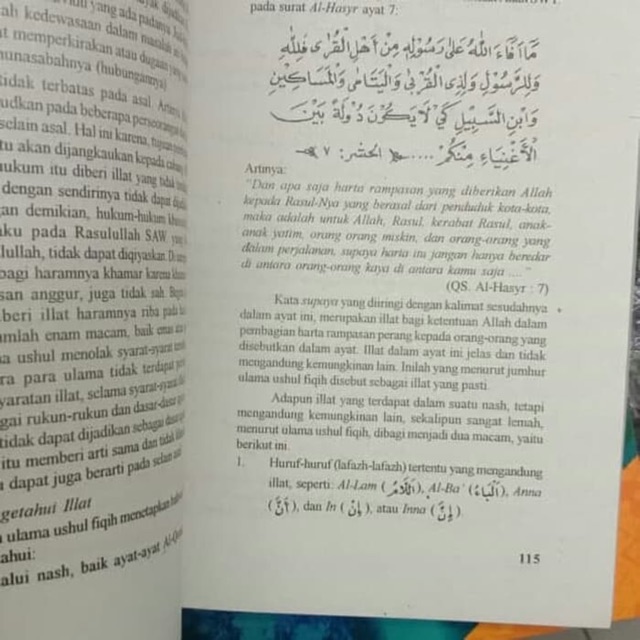 ada padanya
kedewasaan dalam masalah
memperkirakan atau dugaan yang
munasabahnya (hubungannya)
tidak terbatas pada asal. Artinya
pada beberapa
selain asal. Hal ini karena, tujuan
akan dijangkaukan kepada
hukum itu diberi illat yang tidak
dengan sendirinya tidak dapat
demikian, hukum-hukum
pada Rasulullah SAW yang
tidak dapat diqiyaskan.
bagi haramnya khamar karena
anggur, juga tidak sah.
illat haramnya riba pada
enam macam, baik emas
ushul menolak syarat-syarat
para ulama tidak terdapat
illat, selama syarat-syarat
rukun-rukun dan dasar-dasar
tidak dapat dijadikan sebagai dasar
itu memberi arti sama dan tidak
dapat juga berarti pada selain asal
Illat
ulama ushul fiqih menetapkan
nash, baik ayat-ayat Al-
pada surat Al-Hasyr ayat 7:
مَا أَفَاءَ اللهُ عَلَى رَسُولِهِ مِنْ أَهْلِ الْقُرَى فَلِلَّهِ
وَلِلرَّسُولِ وَلِذِى الْقُرْبَى وَالْيَتَامَى وَالْمَسَاكِيْنِ
وَابْنِ السَّبِيْلِ كَيْ لَا يَكُوْنَ دُوْلَةً بَيْنَ
الْأَغْنِيَاءِ مِنْكُمْ .... الحشر: ٧
Artinya:
"Dan apa saja harta rampasan yang diberikan Allah
kepada Rasul-Nya yang berasal dari penduduk kota-kota,
maka adalah untuk Allah, Rasul, kerabat Rasul, anak-
anak yatim, orang orang miskin, dan orang-orang yang
dalam perjalanan, supaya harta itu jangan hanya beredar
di antara orang-orang kaya di antara kamu saja ...."
(QS. Al-Hasyr : 7)
Kata supaya yang diiringi dengan kalimat sesudahnya
dalam ayat ini, merupakan illat bagi ketentuan Allah dalam
pembagian harta rampasan perang kepada orang-orang yang
disebutkan dalam ayat. Illat dalam ayat ini jelas dan tidak
mengandung kemungkinan lain. Inilah yang menurut jumhur
ulama ushul fiqih disebut sebagai illat yang pasti.
Adapun illat yang terdapat dalam suatu nash, tetapi
mengandung kemungkinan lain, sekalipun sangat lemah,
menurut ulama ushul fiqih, dibagi menjadi dua macam, yaitu
berikut ini.
1. Huruf-huruf (lafazh-lafazh) tertentu yang mengandung
illat, seperti: Al-Lam (اَللَّامُ), Al-Ba' (اَلْبَاءُ), Anna
(أَنَّ), dan In (إِنْ), atau Inna (إِنَّ).
115